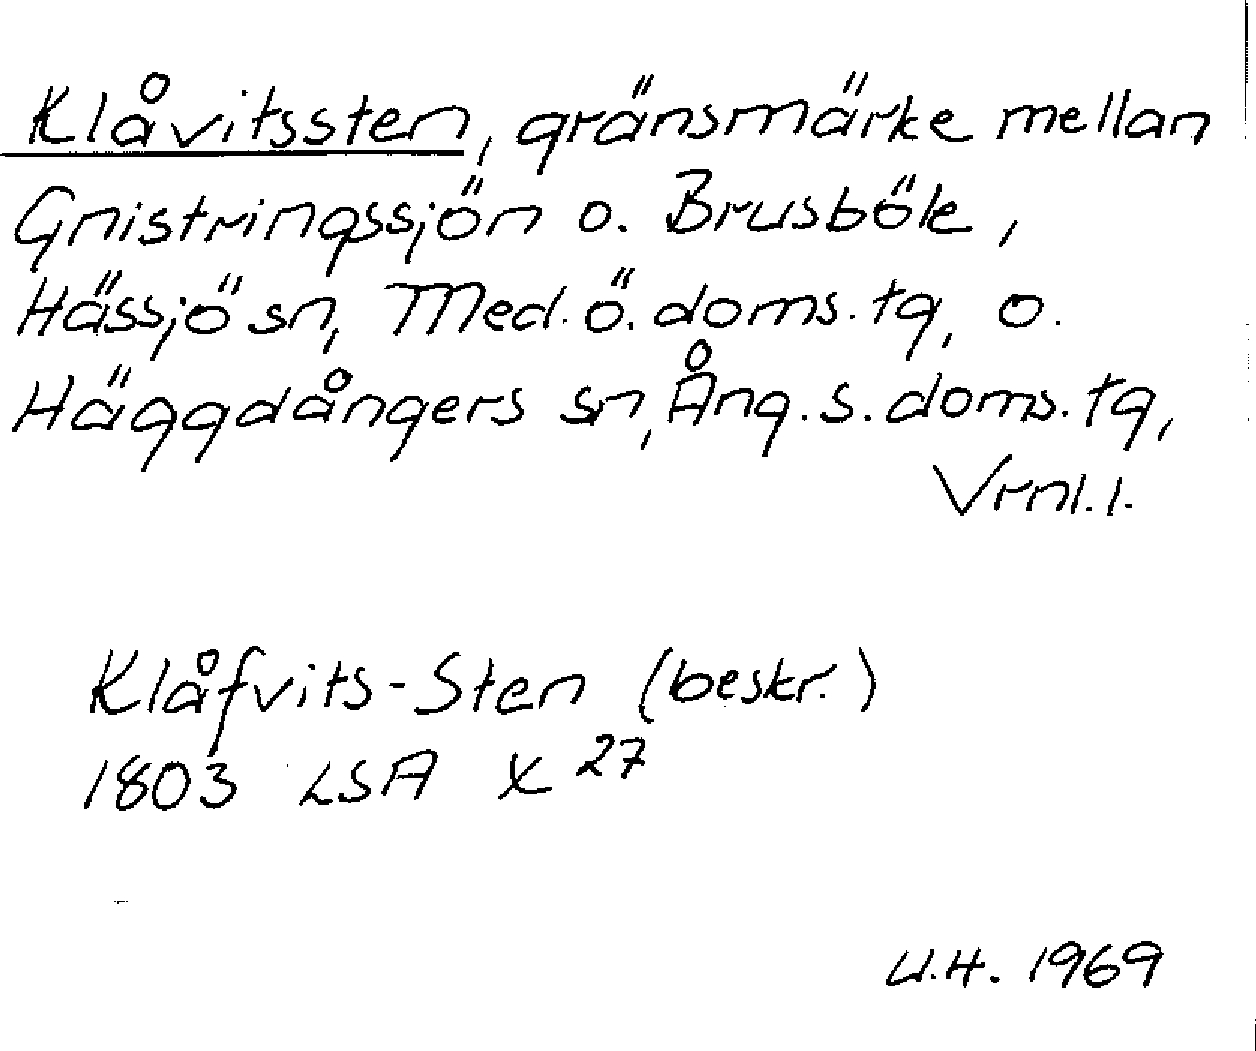 Klåvitssten, gränsmärke mellan
Gnistringssjön o. Brusböle,
Hässjö sn, Med. ö. doms. tg, o.
Häggdångers sn, Ång. s. doms. tg,
Vrnl. l.
Klåfvits-Sten (beskr.)
1803 LSA X 27
U.H. 1969